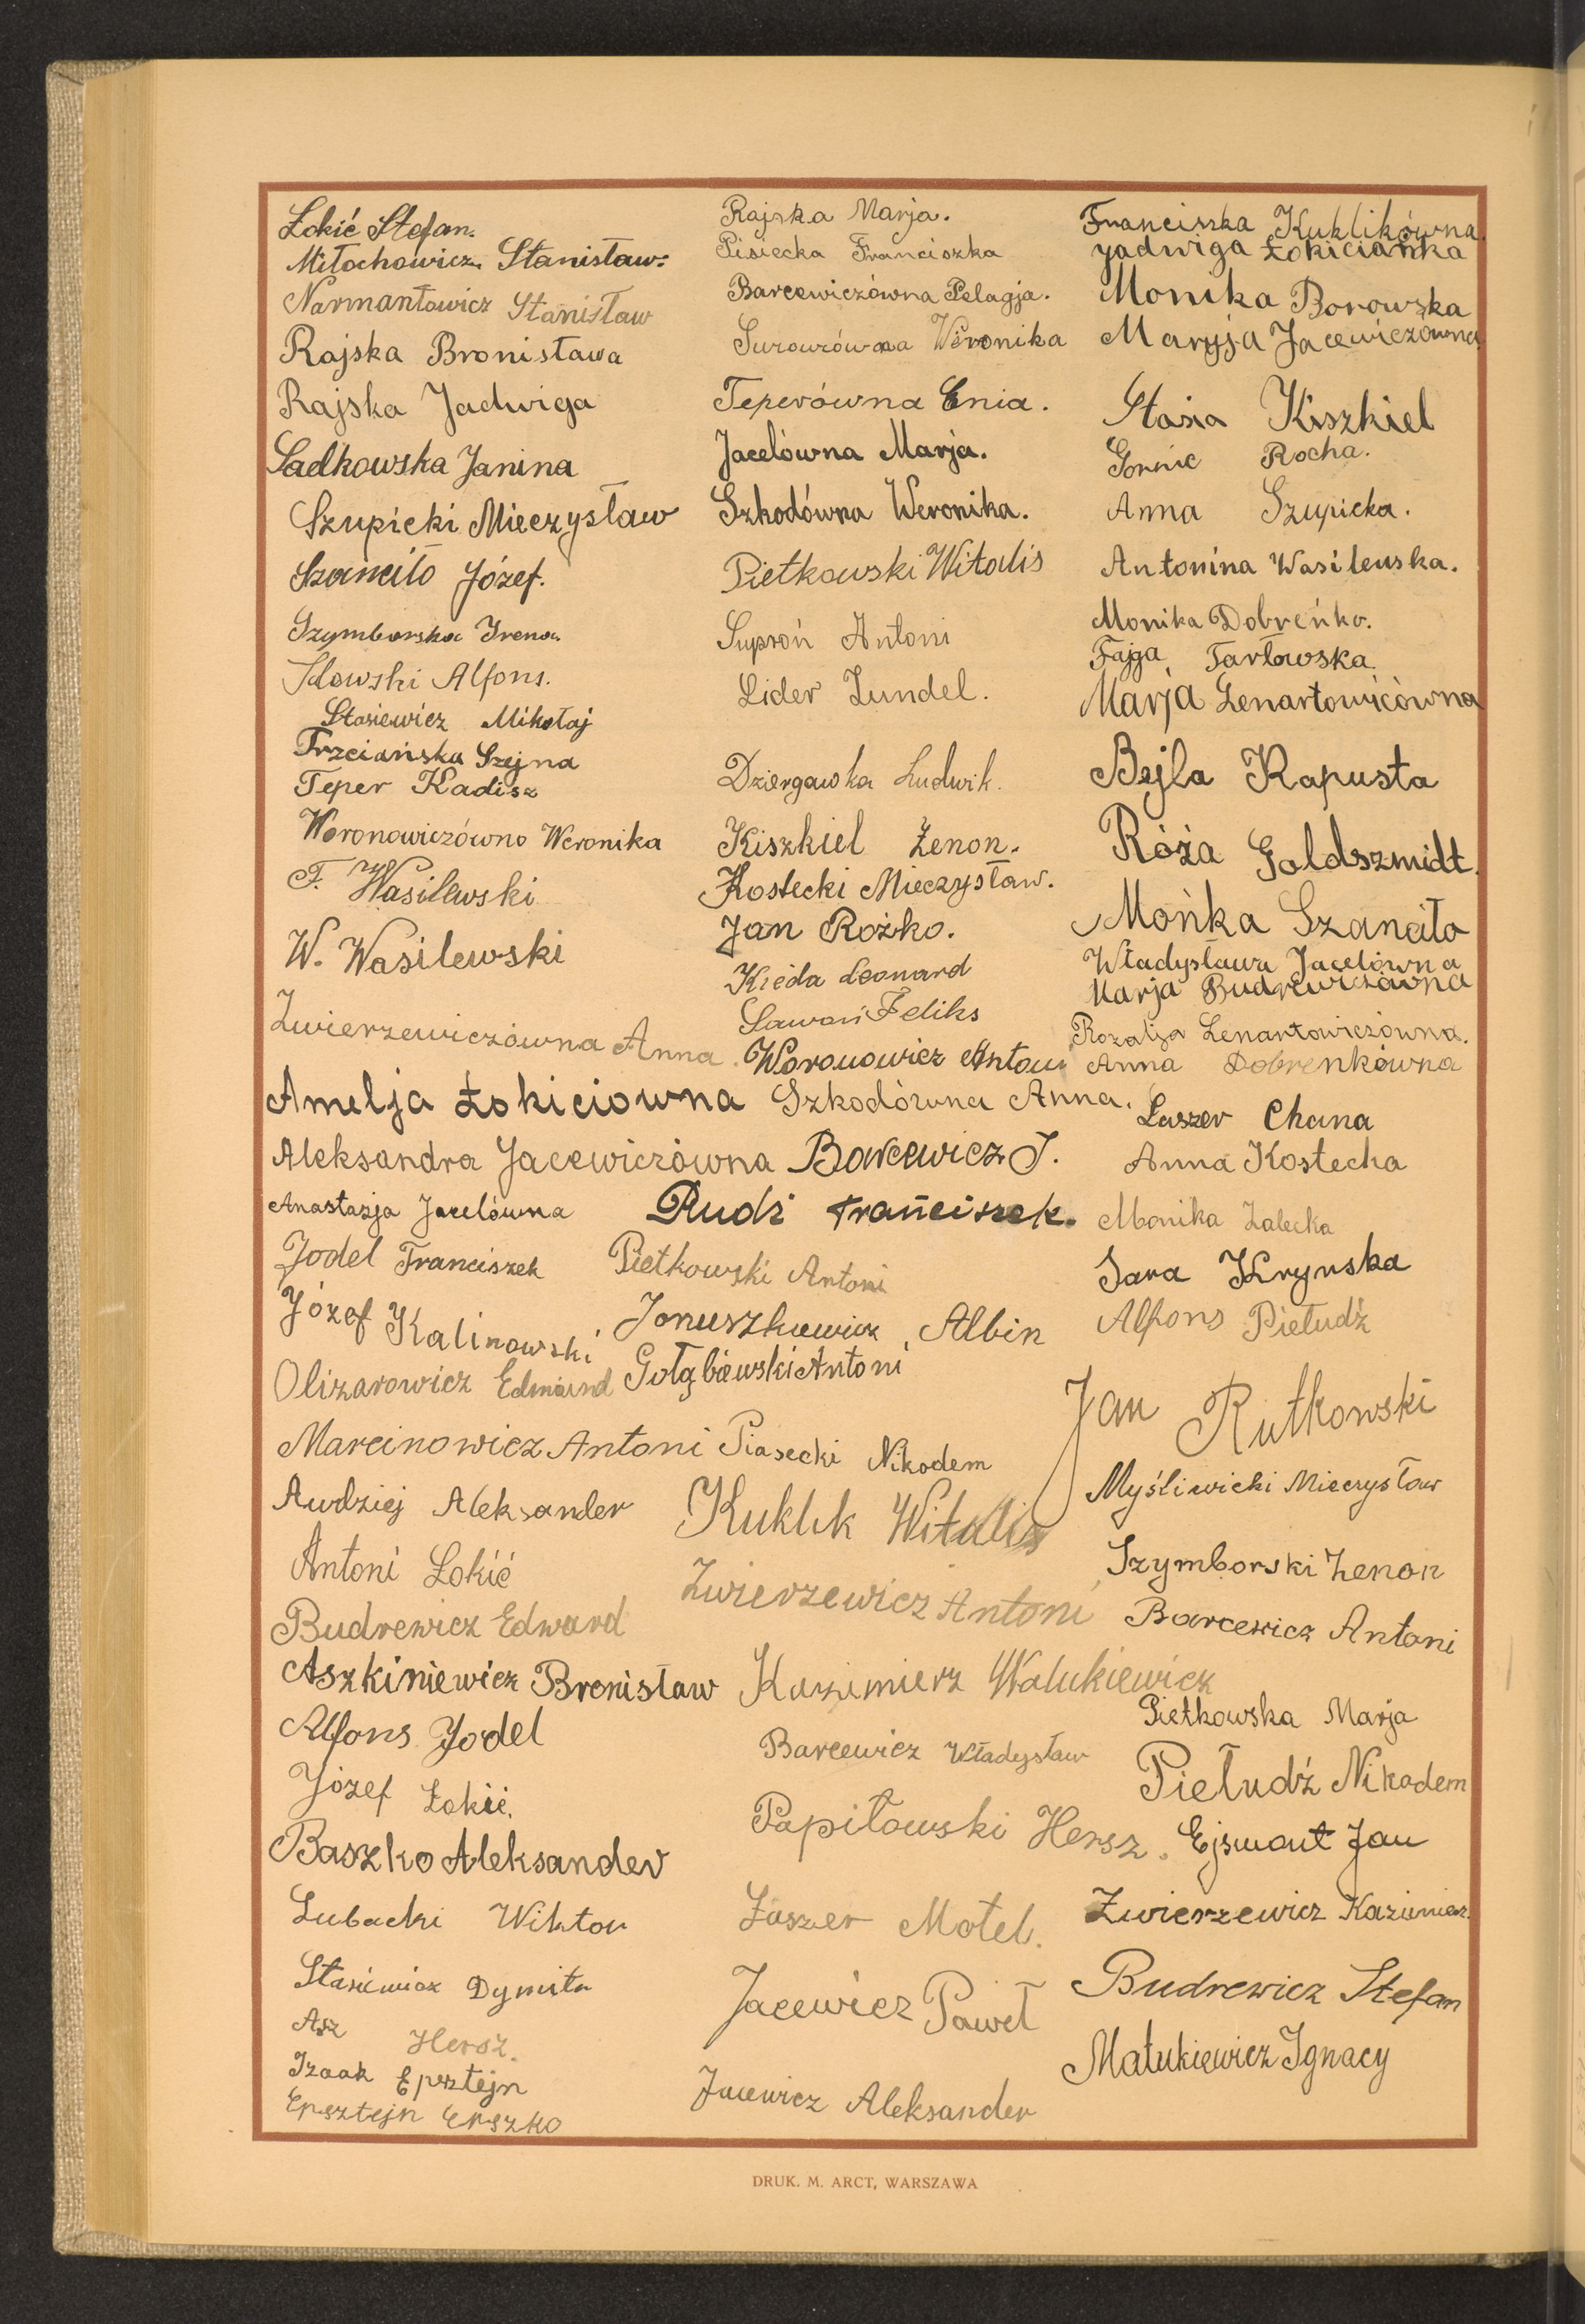 Łokić Stefan.
Miłochowicz Stanisław.
Narmantowicz Stanisław
Rajska Bronisława
Rajska Jadwiga
Sadkowska Janina
Szupicki Mieczysław
Szanciło Józef.
Szymborska Irena
Iłowski Alfons.
Stasiewicz Mikołaj
Trzciańska Szejna
Teper Kadisz
Woronowiczówno Weronika
F. Wasilewski
W. Wasilewski
Zwierzewiczówna Anna.
Amelja Łokiciowna
Aleksandra Jacewiczówna
Anastazja Jacelówna
Jodel Franciszek
Józef Kalinowski
Olizarowicz Edmund
Marcinowicz Antoni
Awdziej Aleksander
Antoni Łokić
Budrewicz Edward
Aszkiniewicz Bronisław
Alfons Jodel
Józef Łokić.
Baszko Aleksander
Lubacki Wiktor
Stasiewicz Dymitr
Asz Hersz.
Izaak Epsztejn
Epsztejn Erszko
Rajska Marja.
Pisiecka Franciszka
Barcewiczówna Pelagja.
Surowrówna Weronika
Teperówna Enia.
Jacelówna Marja.
Szkodówna Weronika.
Pietkowski Witalis
Suproń Antoni
Lider Zundel.
Dziergawka Ludwik.
Kiszkiel Zenon.
Kostecki Mieczysław.
Jan Rożko.
Kieda Leonard
Sawoń Feliks
Woronowicz Antoni
Szkodówna Anna.
Barcewicz J.
Rudź Franciszek.
Pietkowski Antoni
Januszkiewicz Albin
Gołąbiewski Antoni
Piasecki Nikodem
Kuklik Witalis
Zwierzewicz Antoni
Kazimierz Walukiewicz
Barcewicz Władysław
Papiłowski Hersz.
Łaszer Motel.
Jacewicz Paweł
Jacewicz Aleksander
Franciszka Kuklikówna.
Jadwiga Łokicianka
Monika Borowska
Maryja Jacewiczówna
Stasia Kiszkiel
Gornic Rocha.
Anna Szupicka.
Antonina Wasilewska.
Monika Dobreńko.
Fajga Tarłowska.
Marja Lenartowicówna
Bejla Kapusta
Róża Goldszmidt.
Mońka Szanciło
Władysława Jacelówna
Marja Budrewiczówna
Rozalja Lenartowiczówna.
Anna Dobrenkówna
Łaszer Chana
Anna Kostecka
Monika Zalecka
Sara Krynska
Alfons Pietudź
Jan Rutkowski
Myśliwicki Mieczysław
Szymborski Zenon
Barcewicz Antoni
Pietkowska Marja
Pietudź Nikodem
Ejsmont Jan
Zwierzewicz Kazimierz.
Budrewicz Stefan
Matukiewicz Ignacy
DRUK. M. ARCT, WARSZAWA